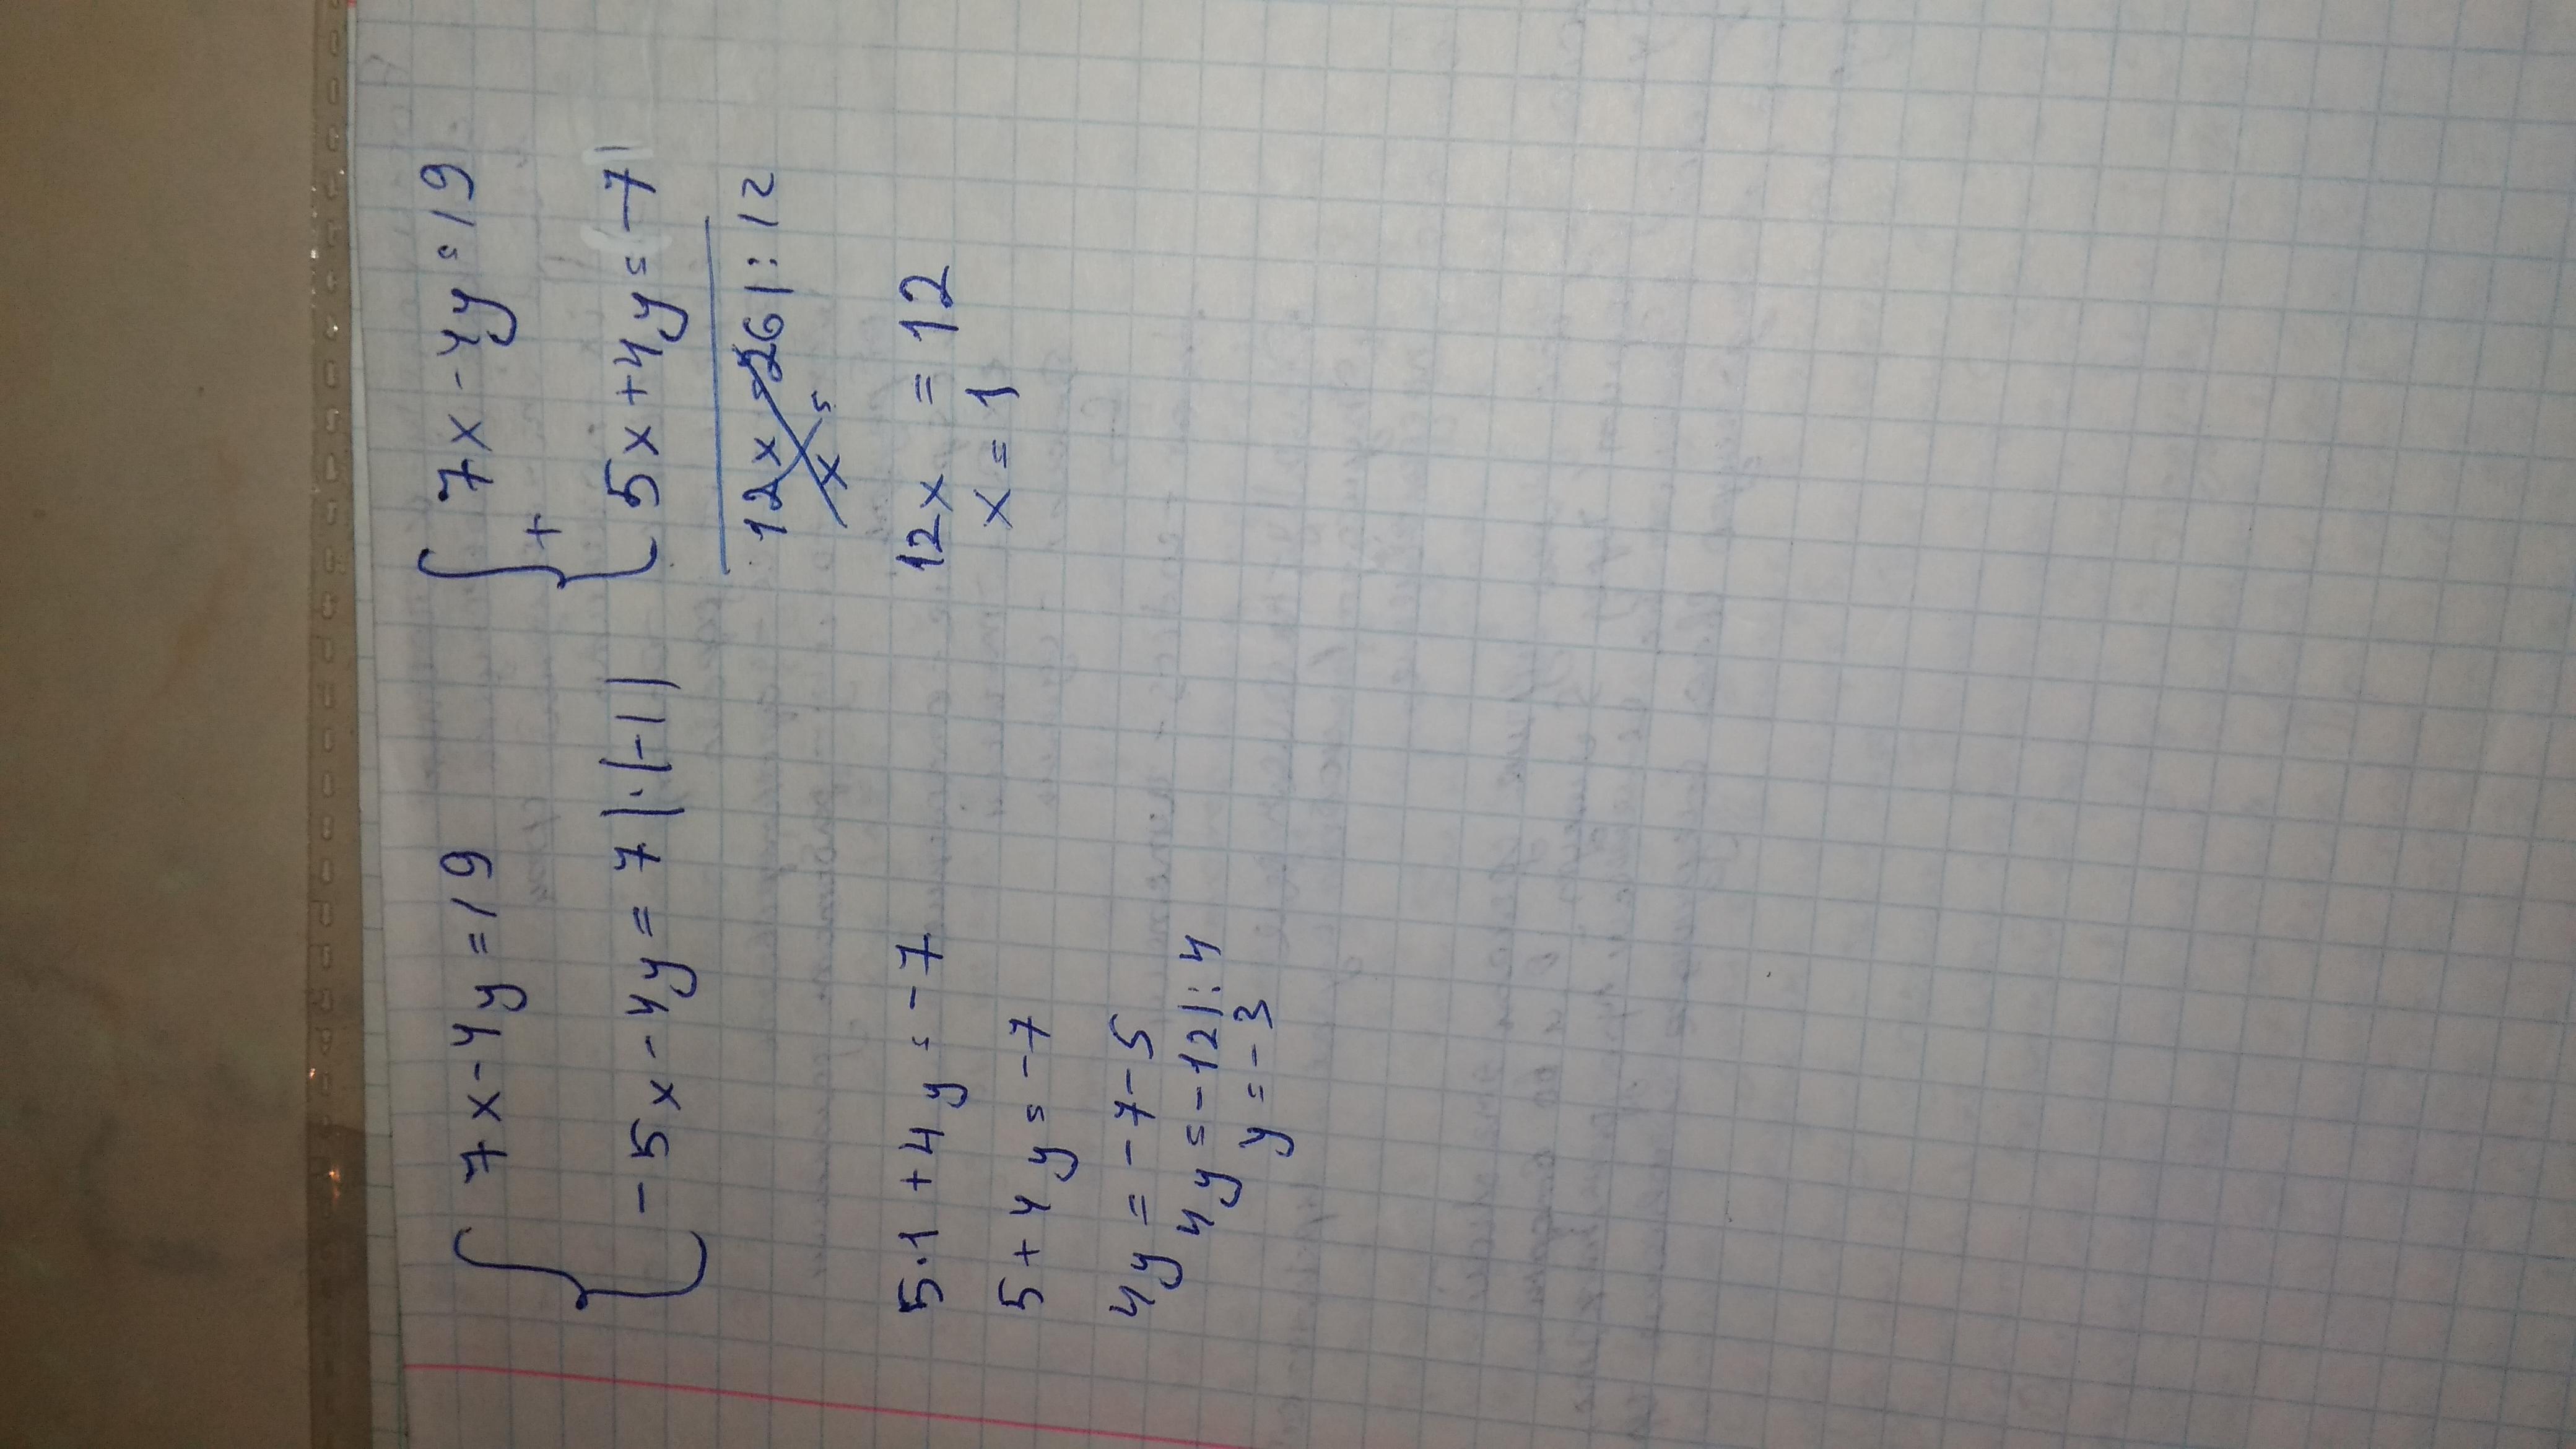 7x-4y=19
-5x-4y=7|·(-1)
7x-4y=19
+
5x+4y=-7
12x=26|:12
x=
12x=12
x=1
5·1+4y=-7
5+4y=-7
4y=-7-5
4y=-12|:4
y=-3